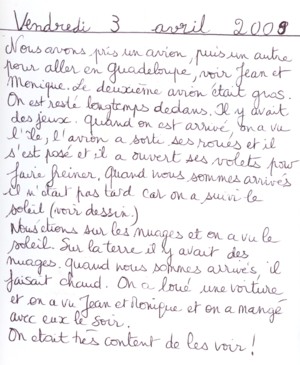 Vendredi 3 avril 2009
Nous avons pris un avion, puis un autre
pour aller en Guadeloupe, voir Jean et
Monique. Le deuxième avion était gros.
On est resté longtemps dedans. Il y avait
des jeux. Quand on est arrivé, on a vu
l'île, l'avion a sorti ses roues et il
s'est posé et il a ouvert ses volets pour
faire freiner. Quand nous sommes arrivés
il n'était pas tard car on a suivi le
soleil (voir dessin.)
Nous étions sur les nuages et on a vu le
soleil. Sur la terre il y avait des
nuages. Quand nous sommes arrivés, il
faisait chaud. On a loué une voiture
et on a vu Jean et Monique et on a mangé
avec eux le soir.
On était très content de les voir !